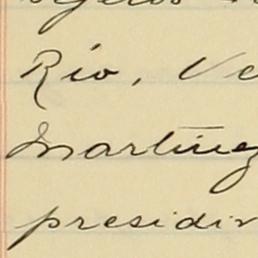 Rio, Ve
Martinez
presidir